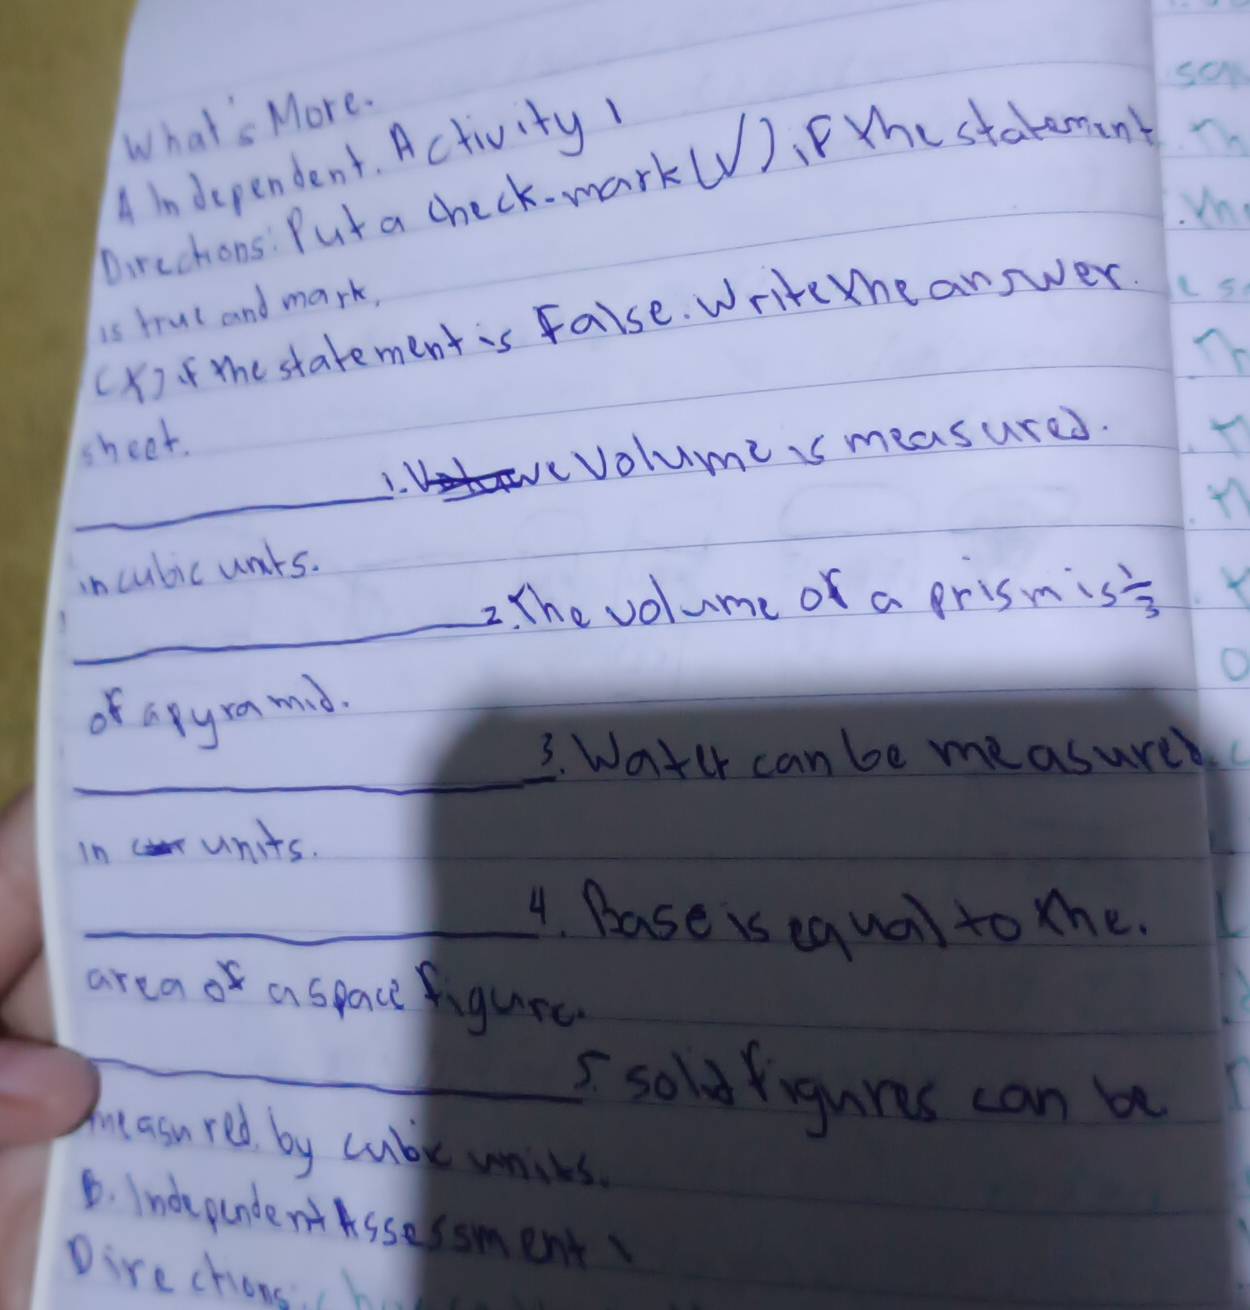 What's More.
A Independent. Activity 1
Directions: Put a check-mark (√) if the statement
is true and mark.
(X) if the statement is False. Write the answer.
sheet.
1. Volume is measured.
in cubic units.
2. The volume of a prism is 1/3
of a pyramid.
3. Water can be measured.
in units.
4. Base is equal to the.
area of a space figure.
5. solid figures can be
measured. by cubic units.
B. Independent Assessment 1
Directions: